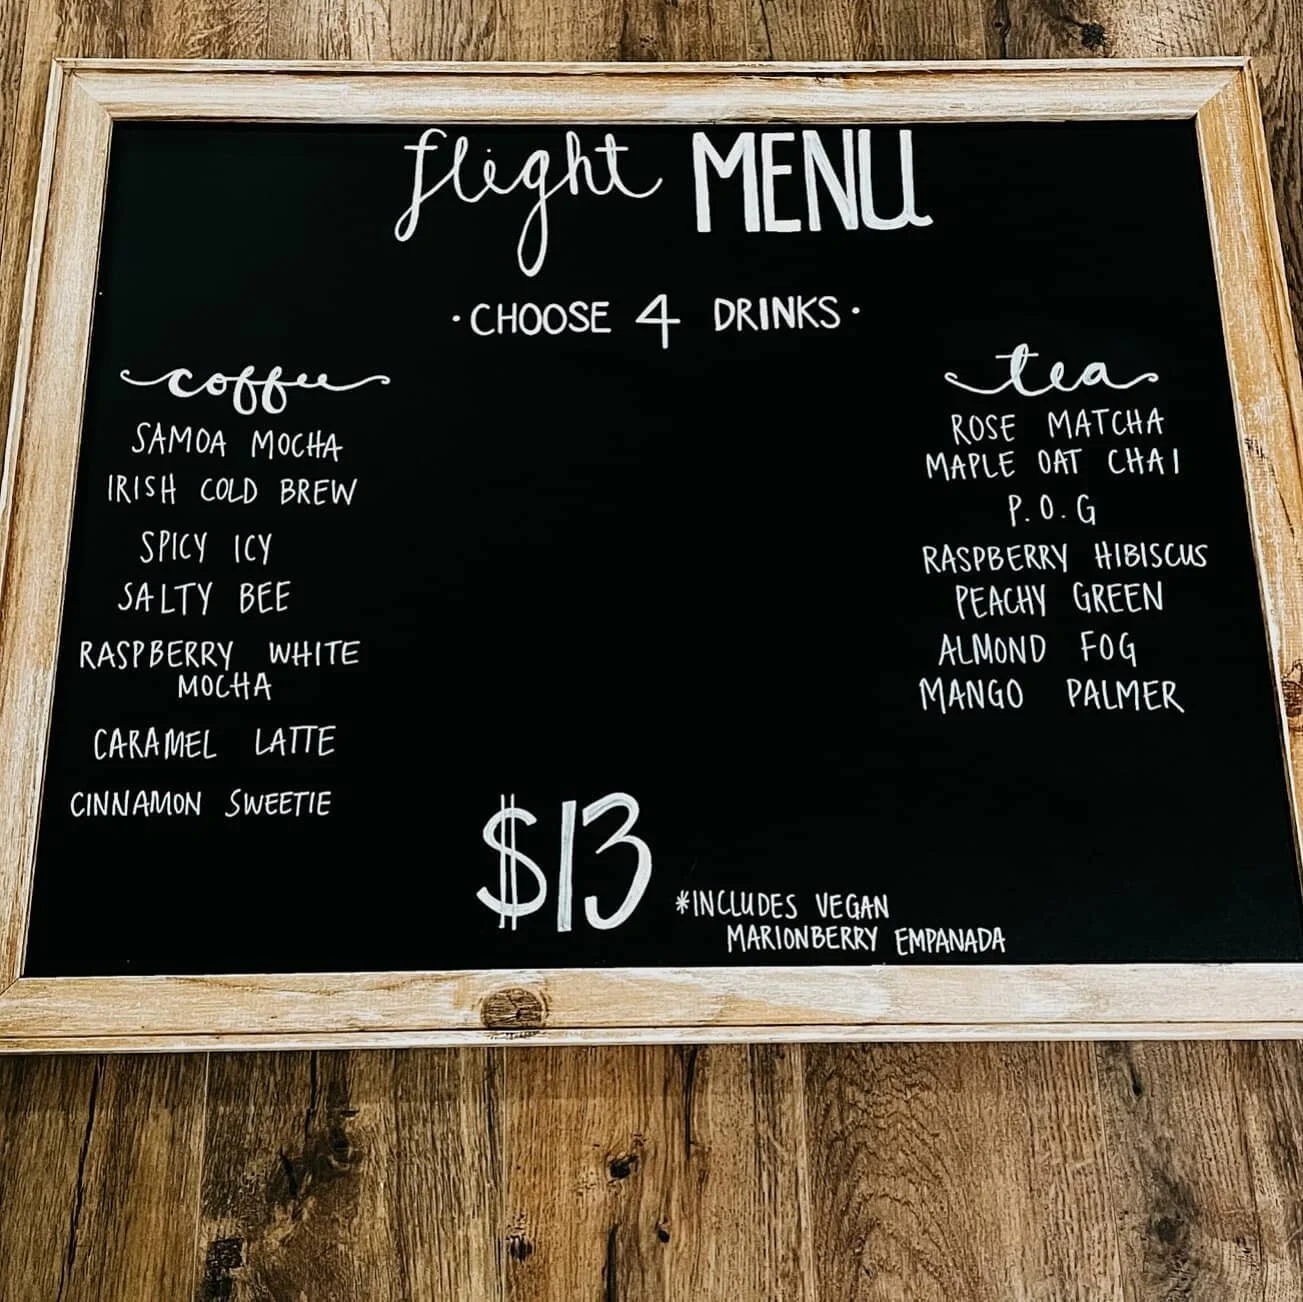 flight MENU
·CHOOSE 4 DRINKS·
coffee
SAMOA MOCHA
IRISH COLD BREW
SPICY ICY
SALTY BEE
RASPBERRY WHITE
MOCHA
CARAMEL LATTE
CINNAMON SWEETIE
tea
ROSE MATCHA
MAPLE OAT CHAI
P.O.G
RASPBERRY HIBISCUS
PEACHY GREEN
ALMOND FOG
MANGO PALMER
$13
*INCLUDES VEGAN
MARIONBERRY EMPANADA